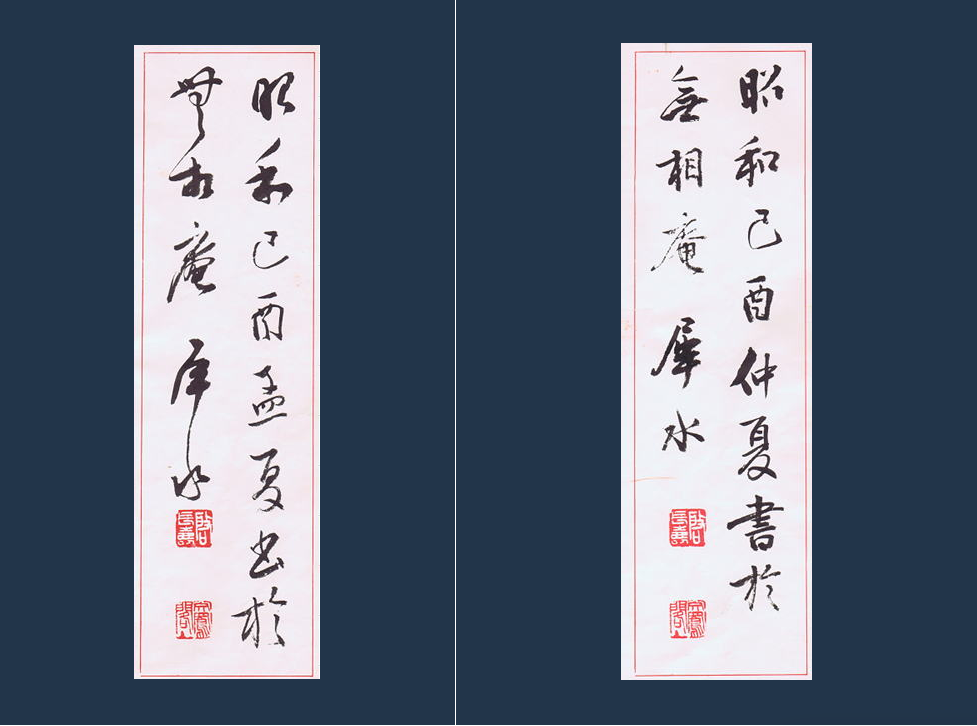 昭和己酉孟夏書於
無相庵 犀水
昭和己酉仲夏書於
無相庵 犀水